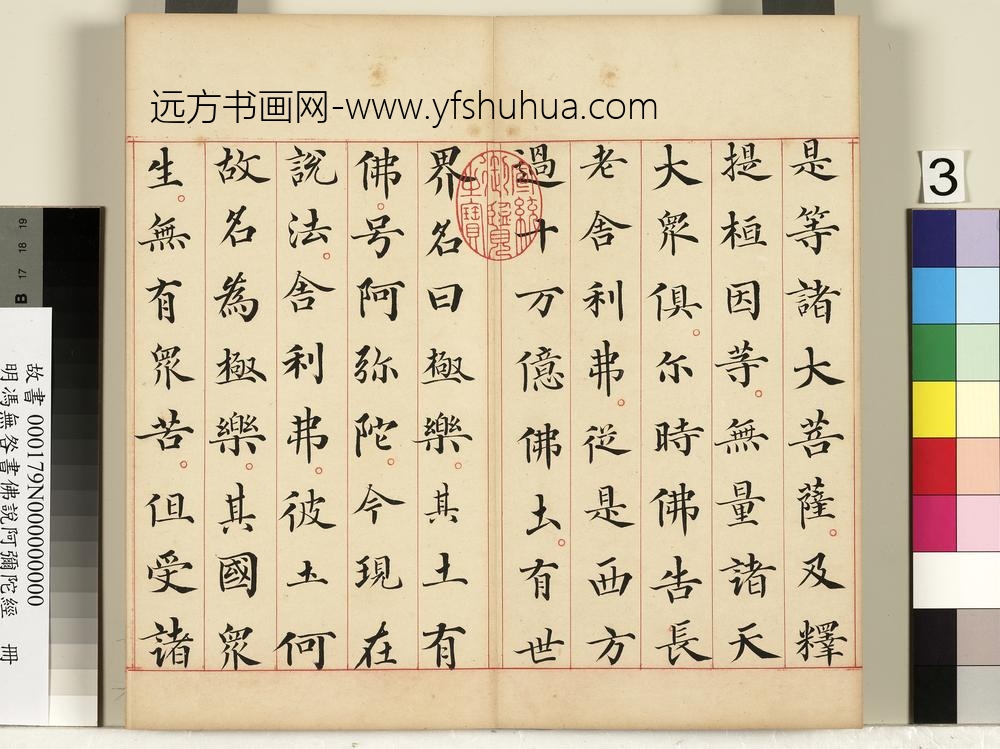 远方书画网-www.yfshuhua.com
是等諸大菩薩。及釋
提桓因等。無量諸天
大衆俱。尔時佛告長
老舎利弗。従是西方
過十万億佛土。有世
界名曰極樂。其土有
佛。号阿弥陀。今現在
說法。舎利弗。彼土何
故名為極樂。其國衆
生。無有衆苦。但受諸
3
B 17 18 19
故書 000179N000000000
明馮無咎書佛說阿彌陀經 冊